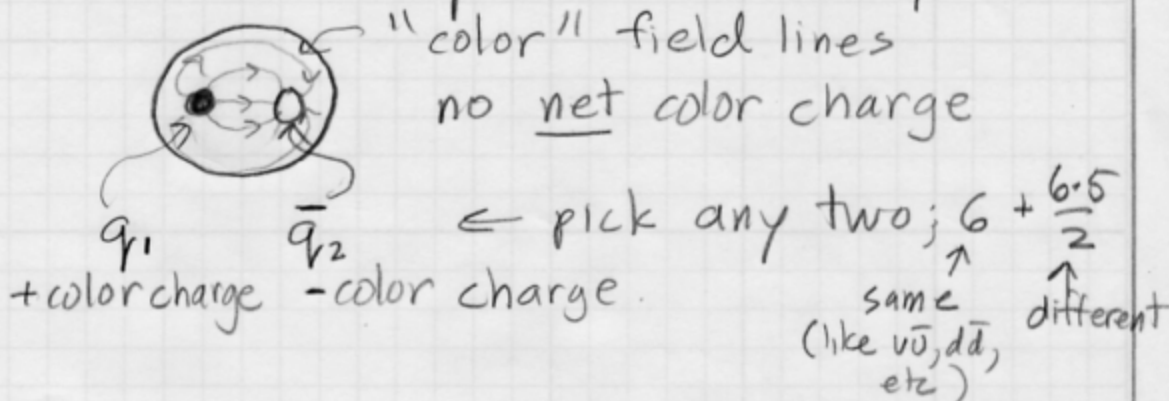 "color" field lines
no net color charge
q₁ q̄₂ ← pick any two; 6 + 6·5/2
+color charge -color charge
same
(like uū, dd̄,
etc)
different